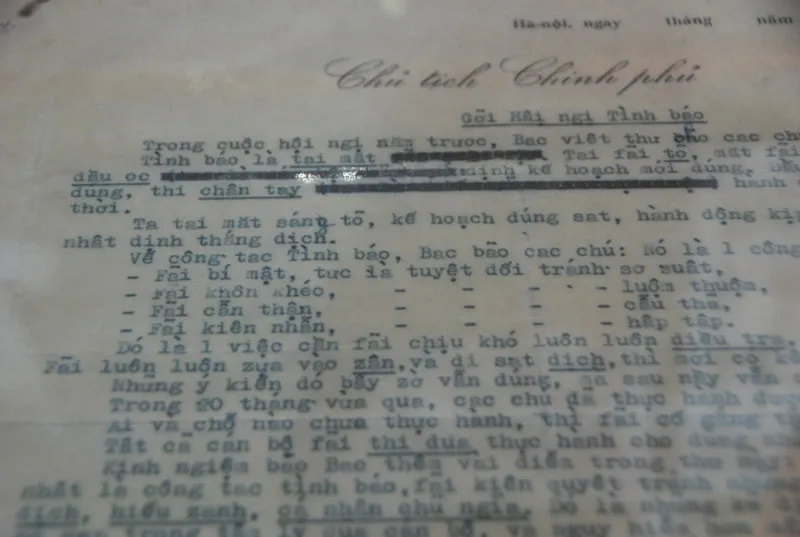 Hà-nội, ngày tháng năm
Chủ tịch Chính phủ
Gởi Hội ngị Tình báo
Trong cuộc hội ngị năm trước, Bac viết thư bảo các ch
Tình báo là tai mắt Tai fải tỏ, mắt fải
dầu oc định kế hoạch mới dúng.
dúng, thì chân tay hành
thời.
Ta tai mắt sáng tỏ, kế hoạch dúng sat, hành dộng kịp
nhất dịnh thắng dịch.
Về công tac Tình báo, Bac bảo cac chú: Nó là 1 công
- Fải bí mật, tưc là tuyệt dối tránh sơ suất,
- Fải khôn khéo, - - - - luộm thuộm,
- Fải cẩn thận, - - - - cẩu thả,
- Fải kiên nhẫn, - - - - hấp tấp.
Dó là 1 việc cần fải chịu khó luôn luôn diều tra.
Fải luôn luôn zựa vào zân, và di sat dich, thì mới co kê
Nhưng ý kiến dó bây zờ vẫn dúng, sau này vẫn
Trong 20 tháng vừa qua, các chú dã thực hành dược
Ai và chỗ nao chưa thực hành, thì fải cố gắng
Tất cả can bộ fải thi dua thực hành cho dúng
Kinh ngiệm bảo Bac thêm vài diểm trong thư này:
nhất là công tac tình báo, fải kiên quyết tránh nhưng
dich, hiếu zanh, cá nhân chủ ngĩa. Dó là nhưng